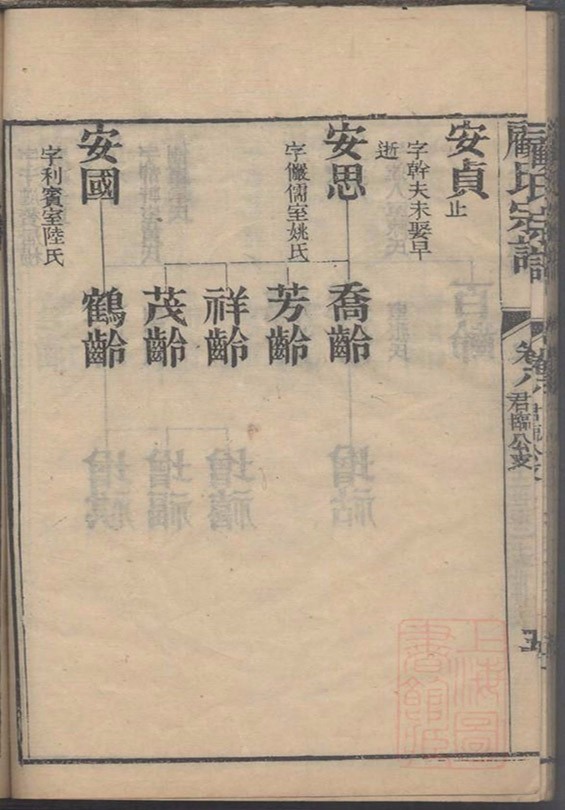 氏宗譜
君臨公支
安貞
止
字幹夫未娶早
逝
安思
字儼儒室姚氏
安國
字利賓室陸氏
喬齡
芳齡
祥齡
茂齡
鶴齡
上海圖
書館藏